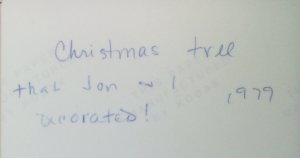 Christmas tree
that Jon ~ I
decorated!
1979